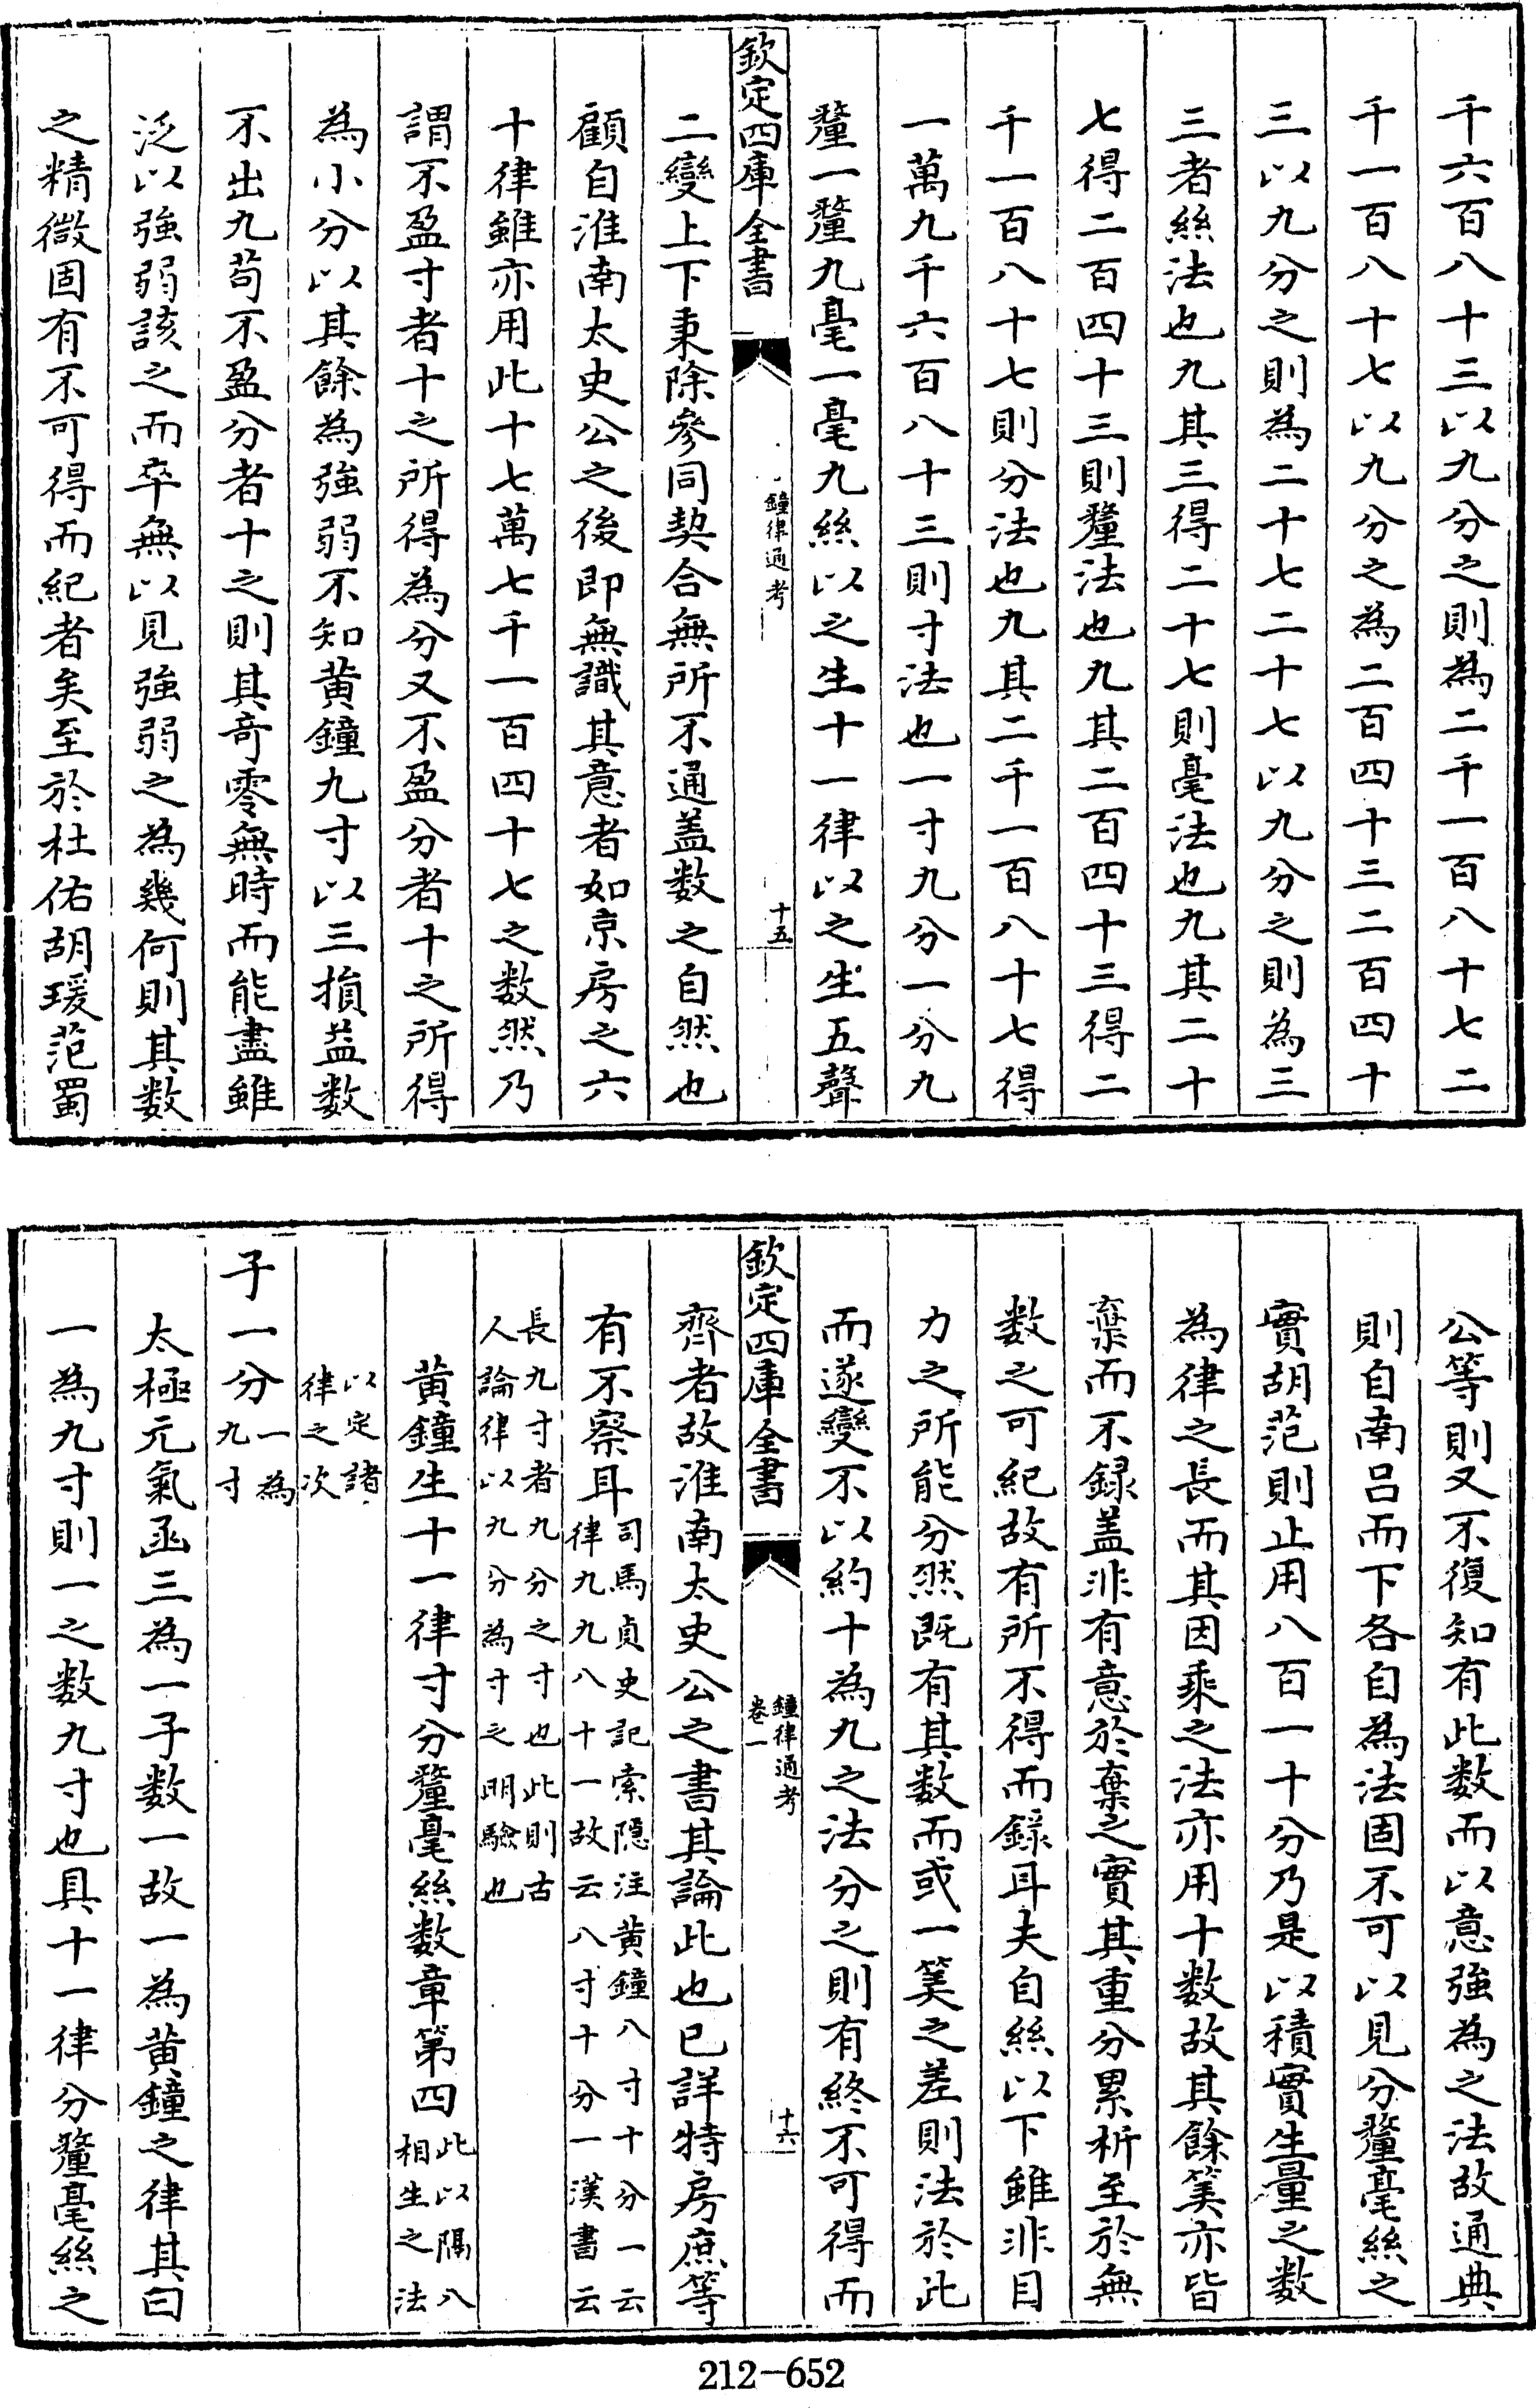 千六百八十三以九分之則為二千一百八十七二
千一百八十七以九分之為二百四十三二百四十
三以九分之則為二十七二十七以九分之則為三
三者絲法也九其三得二十七則毫法也九其二十
七得二百四十三則釐法也九其二百四十三得二
千一百八十七則分法也九其二千一百八十七得
一萬九千六百八十三則寸法也一寸九分一分九
釐一釐九毫一毫九絲以之生十一律以之生五聲
欽定四庫全書
鐘律通考
十五
二變上下乘除參同契合無所不通盖数之自然也
顧自淮南太史公之後即無識其意者如京房之六
十律雖亦用此十七萬七千一百四十七之数然乃
謂不盈寸者十之所得為分又不盈分者十之所得
為小分以其餘為強弱不知黄鐘九寸以三損益数
不出九苟不盈分者十之則其奇零無時而能盡雖
泛以強弱該之而卒無以見強弱之為幾何則其数
之精微固有不可得而紀者矣至於杜佑胡瑗范蜀
公等則又不復知有此数而以意強為之法故通典
則自南呂而下各自為法固不可以見分釐毫絲之
實胡范則止用八百一十分乃是以積實生量之数
為律之長而其因乘之法亦用十数故其餘筭亦皆
棄而不録盖非有意於棄之實其重分累析至於無
数之可紀故有所不得而録耳夫自絲以下雖非目
力之所能分然既有其数而或一筭之差則法於此
而遂變不以約十為九之法分之則有終不可得而
欽定四庫全書
鐘律通考
卷一
十六
齊者故淮南太史公之書其論此也已詳特房庶等
有不察耳司馬貞史記索隱注黄鐘八寸十分一云
律九九八十一故云八寸十分一漢書云
長九寸者九分之寸也此則古
人論律以九分為寸之明驗也
黄鐘生十一律寸分釐毫絲数章第四此以隔八
相生之法
以定諸
律之次
子一分一為
九寸
太極元氣函三為一子数一故一為黄鐘之律其曰
一為九寸則一之数九寸也具十一律分釐毫絲之
212-652